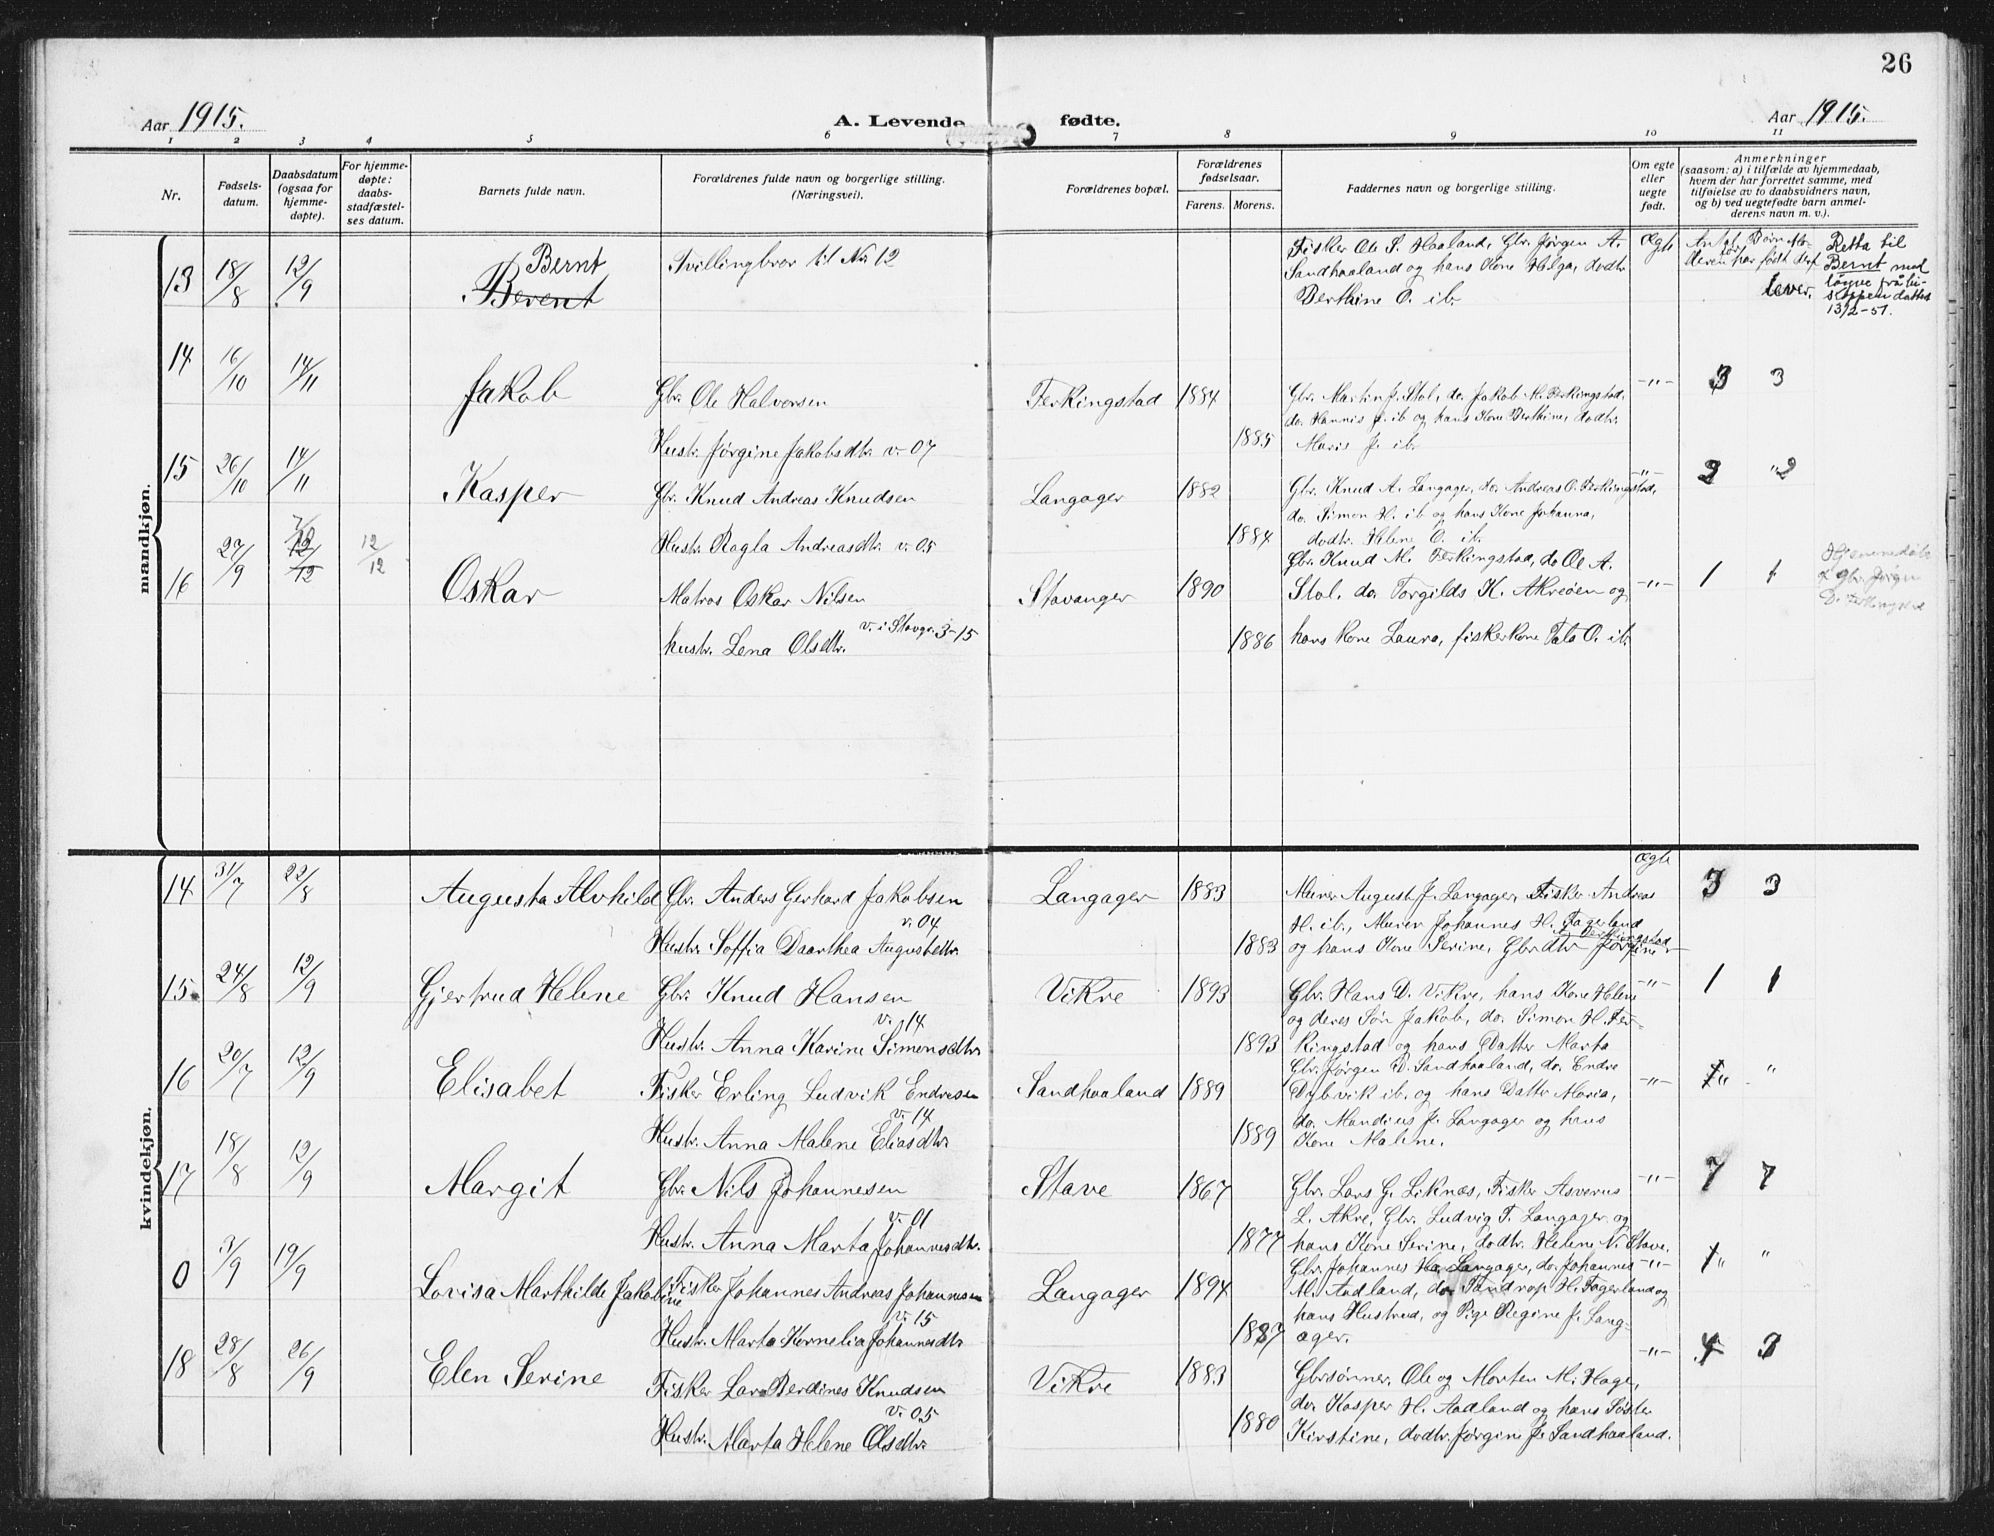 26
Aar 1915. A. Levende fødte. Aar 1915.
1 2 3 4 5 6 7 8 9 10 11
Nr.
Fødsels-
datum.
Daabsdatum
(ogsaa for
hjemme-
døpte).
For hjemme-
døpte:
daabs-
stadfæstel-
ses datum.
Barnets fulde navn.
Forældrenes fulde navn og borgerlige stilling.
(Næringsvei).
Forældrenes bopæl.
Forældrenes
fødselsaar.
Farens. Morens.
Faddernes navn og borgerlige stilling.
Om egte
eller
uegte
født.
Anmerkninger
(saasom: a) i tilfælde av hjemmedaab,
hvem der har forrettet samme, med
tilføielse av to daabsvidners navn,
og b) ved uegtefødte barn anmel-
derens navn m. v.).
mandkjøn.
13 18/8 12/9 Bernt
Berent
Tvillingbror til Nr 12
Fisker Ole S. Haaland, Gbr. Jørgen A.
Sandhaaland og hans Kone Helga, dodtr
Berthine O. ib.
Ægte
Antal Børn Mo-
deren har født deraf
lever.
Retta til
Bernt med
løyve frå bi-
skoppen datter
13/2-51.
14 16/10 14/11 Jakob
Gbr. Ole Halvorsen
Hustr. Jørgine Jakobsdtr. v. 07
Ferkingstad 1884
1885
Gbr. Martin J. Stol, do. Jakob M. Ferkingstad,
do. Hannis J. ib og hans Kone Berthine, dodtr.
Maris J. ib.
-"- 3 3
15 26/10 14/11 Kasper
Gbr. Knud Andreas Knudsen
Hustr. Ragla Andreasdtr. v. 05
Langager 1882
1884
Gbr. Knud A. Langager, do. Andreas O. Ferkingstad,
do. Simon H. ib og hans Kone Johanna,
dodtr. Helene O. ib.
-"- 2 "2
16 27/9 12/12 12/12 Oskar
Matros Oskar Nilsen
v. i Stavgr. 3-15
hustr. Lena Olsdtr.
Stavanger 1890
1886
Gbr. Knud M. Ferkingstad, do Ole A.
Stol, do. Torgilds K. Akreøen og
hans Kone Laura, fiskerkone Tala O. ib.
-"- 1 1
Hjemmedøbt
Gbr. Jørgen
kvindekjøn.
14 31/7 22/8 Augusta Alvhild
Gbr. Anders Gerhard Jakobsen
v. 04
Hustr. Soffia Daarthea Augustdtr.
Langager 1883
1883
Murer August J. Langager, Fisker Andreas
H. ib., Murer Johannes H. Fagerland
og hans Kone Serine, Gbrdtr Jørgine
Ferkingstad
Ægte 3 3
15 24/8 12/9 Gjertrud Helene
Gbr. Knud Hansen
v. 14
Hustr. Anna Karine Simonsdtr.
Vikre 1893
1893
Gbr. Hans D. Vikre, hans Kone Helene
og deres Søn Jakob, do. Simon H. Fer-
kingstad og hans Datter Marta
-"- 1 1
16 20/7 12/9 Elisabet
Fisker Erling Ludvik Endresen
v. 14
Hustr. Anna Malene Eliasdtr.
Sandhaaland 1889
1889
Gbr. Jørgen D. Sandhaaland, do. Endre
Dybvik ib. og hans Dattr Maria,
do. Mandius J. Langager og hans
Kone Malene.
-"- 1" "
17 18/8 12/9 Margit
Gbr. Nils Johannesen
v. 01
Hustr. Anna Marta Johannesdtr.
Stave 1867
1877
Gbr. Lars G. Liknæs, Fisker Asverus
L. Akre, Gbr. Ludvig T. Langager og
hans Kone Serine, dodtr. Helene N. Stave.
-"- 7 7
0 3/9 19/9 Lovisa Marthilde Jakobine
Fisker Johannes Andreas Johannesen
v. 15
Hustr. Marta Kornelia Johannesdtr.
Langager 1894
1887
Gbr. Johannes Langager, do. Johannes
M. Aadland, do. Tandrop H. Fagerland og
hans Hustrud, og Pige Regine J. Lang-
ager.
-"- 1" "
18 28/8 26/9 Elen Serine
Fisker Lars Berdines Knudsen
v. 05
Hustr. Marta Helene Olsdtr.
Vikre 1883
1880
Gbrsønner Ole og Morten M. Hage,
do. Kasper H. Aadland og hans Søster
Kirstine, dodtr. Jørgine J. Sandhaaland.
-"- 4 3